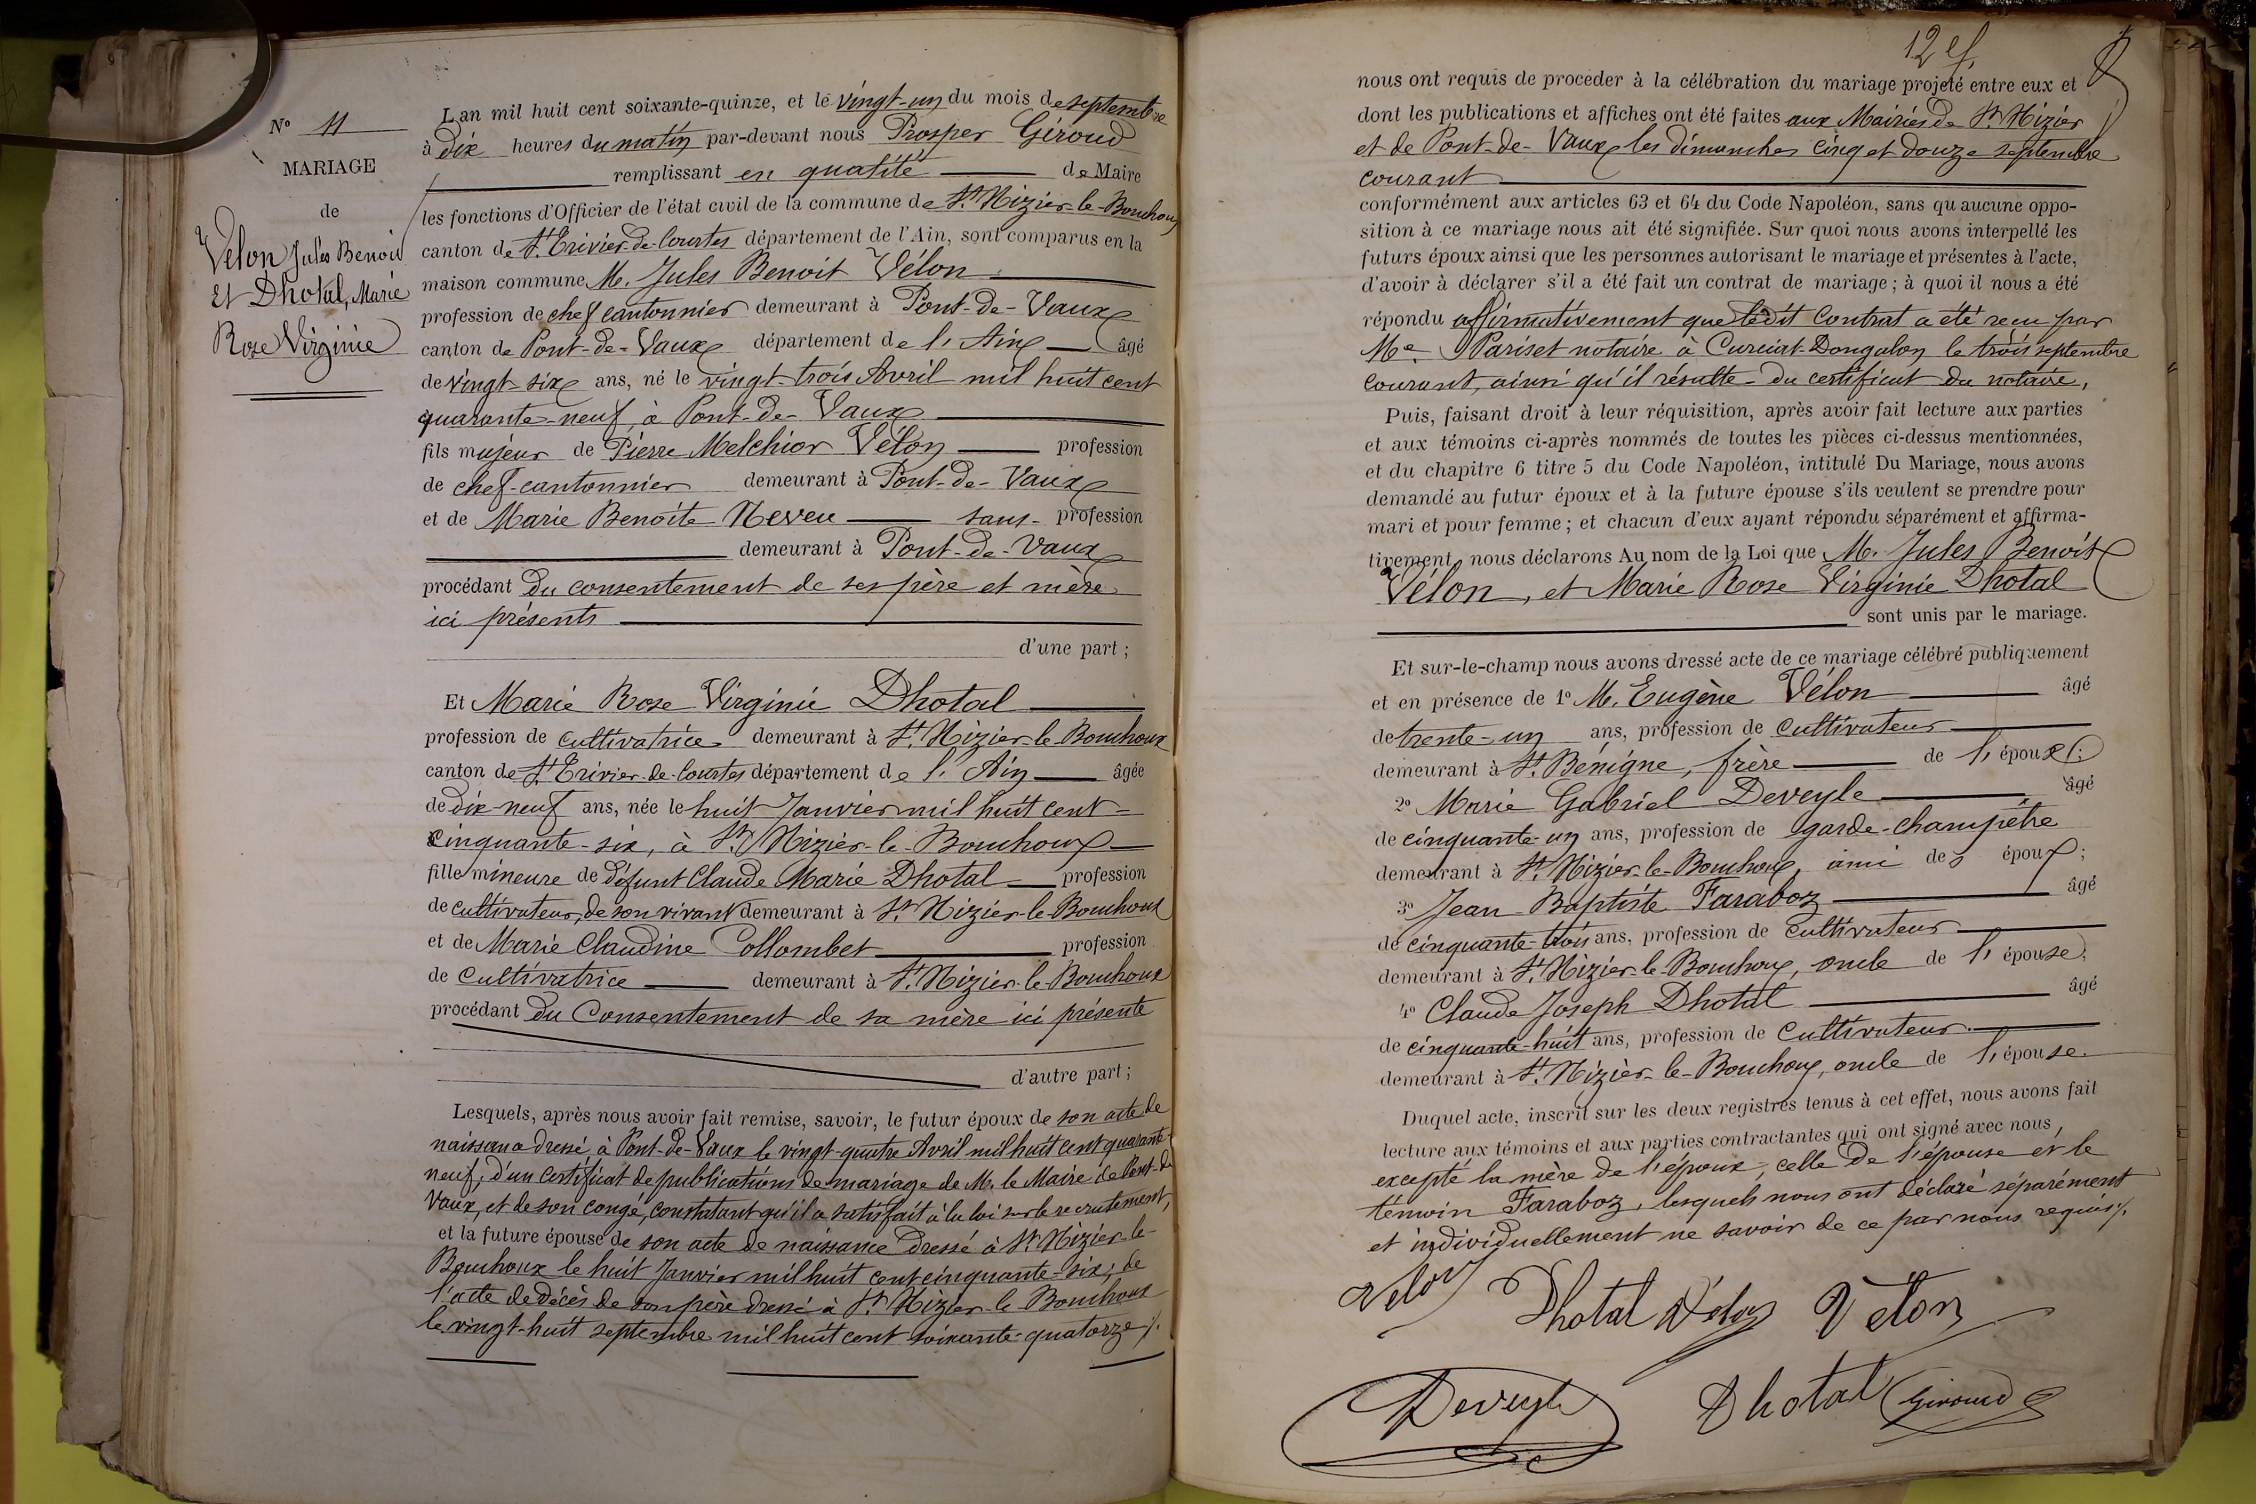 N° 11
MARIAGE
de
Vélon Jules Benoit
et Dhotal, Marie
Rose Virginie
L'an mil huit cent soixante-quinze, et le vingt-un du mois de septembre
à dix heures du matin par-devant nous Prosper Giroud
remplissant en qualité de Maire
les fonctions d'Officier de l'état civil de la commune de St Nizier-le-Bouchoux
canton de St Trivier-de-Courtes département de l'Ain, sont comparus en la
maison commune M. Jules Benoit Vélon
profession de chef cantonnier demeurant à Pont-de-Vaux
canton de Pont-de-Vaux département de l'Ain âgé
de vingt-six ans, né le vingt-trois Avril mil huit cent
quarante-neuf, à Pont-de-Vaux
fils majeur de Pierre Melchior Vélon profession
de chef-cantonnier demeurant à Pont-de-Vaux
et de Marie Benoite Neveu sans profession
demeurant à Pont-de-Vaux
procédant du consentement de ses père et mère
ici présents
d'une part ;
Et Marie Rose Virginie Dhotal
profession de cultivatrice demeurant à St Nizier-le-Bouchoux
canton de St Trivier-de-Courtes département de l'Ain âgée
de dix-neuf ans, née le huit Janvier mil huit cent
cinquante-six, à St Nizier-le-Bouchoux
fille mineure de défunt Claude Marie Dhotal profession
de cultivateur, de son vivant demeurant à St Nizier-le-Bouchoux
et de Marie Claudine Collombet profession
de Cultivatrice demeurant à St Nizier-le-Bouchoux
procédant du Consentement de sa mère ici présente
d'autre part ;
Lesquels, après nous avoir fait remise, savoir, le futur époux de son acte de
naissance dressé à Pont-de-Vaux le vingt-quatre Avril mil huit cent quarante
neuf, d'un certificat de publications de mariage de M. le Maire de Pont-de
Vaux, et de son congé, constatant qu'il a satisfait à la loi sur le recrutement,
et la future épouse de son acte de naissance dressé à St Nizier-le-
Bouchoux le huit Janvier mil huit cent cinquante-six ; de
l'acte de décès de son père dressé à St Nizier-le-Bouchoux
le vingt-huit septembre mil huit cent soixante-quatorze ./.
12 ef.
nous ont requis de procéder à la célébration du mariage projeté entre eux et
dont les publications et affiches ont été faites aux Mairies de St Nizier
et de Pont-de-Vaux les dimanches cinq et douze septembre
courant
conformément aux articles 63 et 64 du Code Napoléon, sans qu'aucune oppo-
sition à ce mariage nous ait été signifiée. Sur quoi nous avons interpellé les
futurs époux ainsi que les personnes autorisant le mariage et présentes à l'acte,
d'avoir à déclarer s'il a été fait un contrat de mariage ; à quoi il nous a été
répondu affirmativement que ledit contrat a été reçu par
Me Pariset notaire à Curciat-Dongalon le trois septembre
courant, ainsi qu'il résulte du certificat du notaire,
Puis, faisant droit à leur réquisition, après avoir fait lecture aux parties
et aux témoins ci-après nommés de toutes les pièces ci-dessus mentionnées,
et du chapitre 6 titre 5 du Code Napoléon, intitulé Du Mariage, nous avons
demandé au futur époux et à la future épouse s'ils veulent se prendre pour
mari et pour femme ; et chacun d'eux ayant répondu séparément et affirma-
tivement, nous déclarons Au nom de la Loi que M. Jules Benoit
Vélon, et Marie Rose Virginie Dhotal
sont unis par le mariage.
Et sur-le-champ nous avons dressé acte de ce mariage célébré publiquement
et en présence de 1° M. Eugène Vélon âgé
de trente-un ans, profession de cultivateur
demeurant à St Bénigne, frère de l'époux ;
2° Marie Gabriel Deveyle âgé
de cinquante-un ans, profession de garde-champêtre
demeurant à St Nizier-le-Bouchoux ami des époux ;
3° Jean-Baptiste Faraboz âgé
de cinquante-trois ans, profession de cultivateur
demeurant à St Nizier-le-Bouchoux, oncle de l'épouse ;
4° Claude Joseph Dhotal âgé
de cinquante-huit ans, profession de cultivateur
demeurant à St Nizier-le-Bouchoux, oncle de l'épouse.
Duquel acte, inscrit sur les deux registres tenus à cet effet, nous avons fait
lecture aux témoins et aux parties contractantes qui ont signé avec nous,
excepté la mère de l'époux, celle de l'épouse et le
témoin Faraboz, lesquels nous ont déclaré séparément
et individuellement ne savoir de ce par nous requis ./.
Velon Dhotal Vélon Vélon
Deveyle Dhotal Giroud